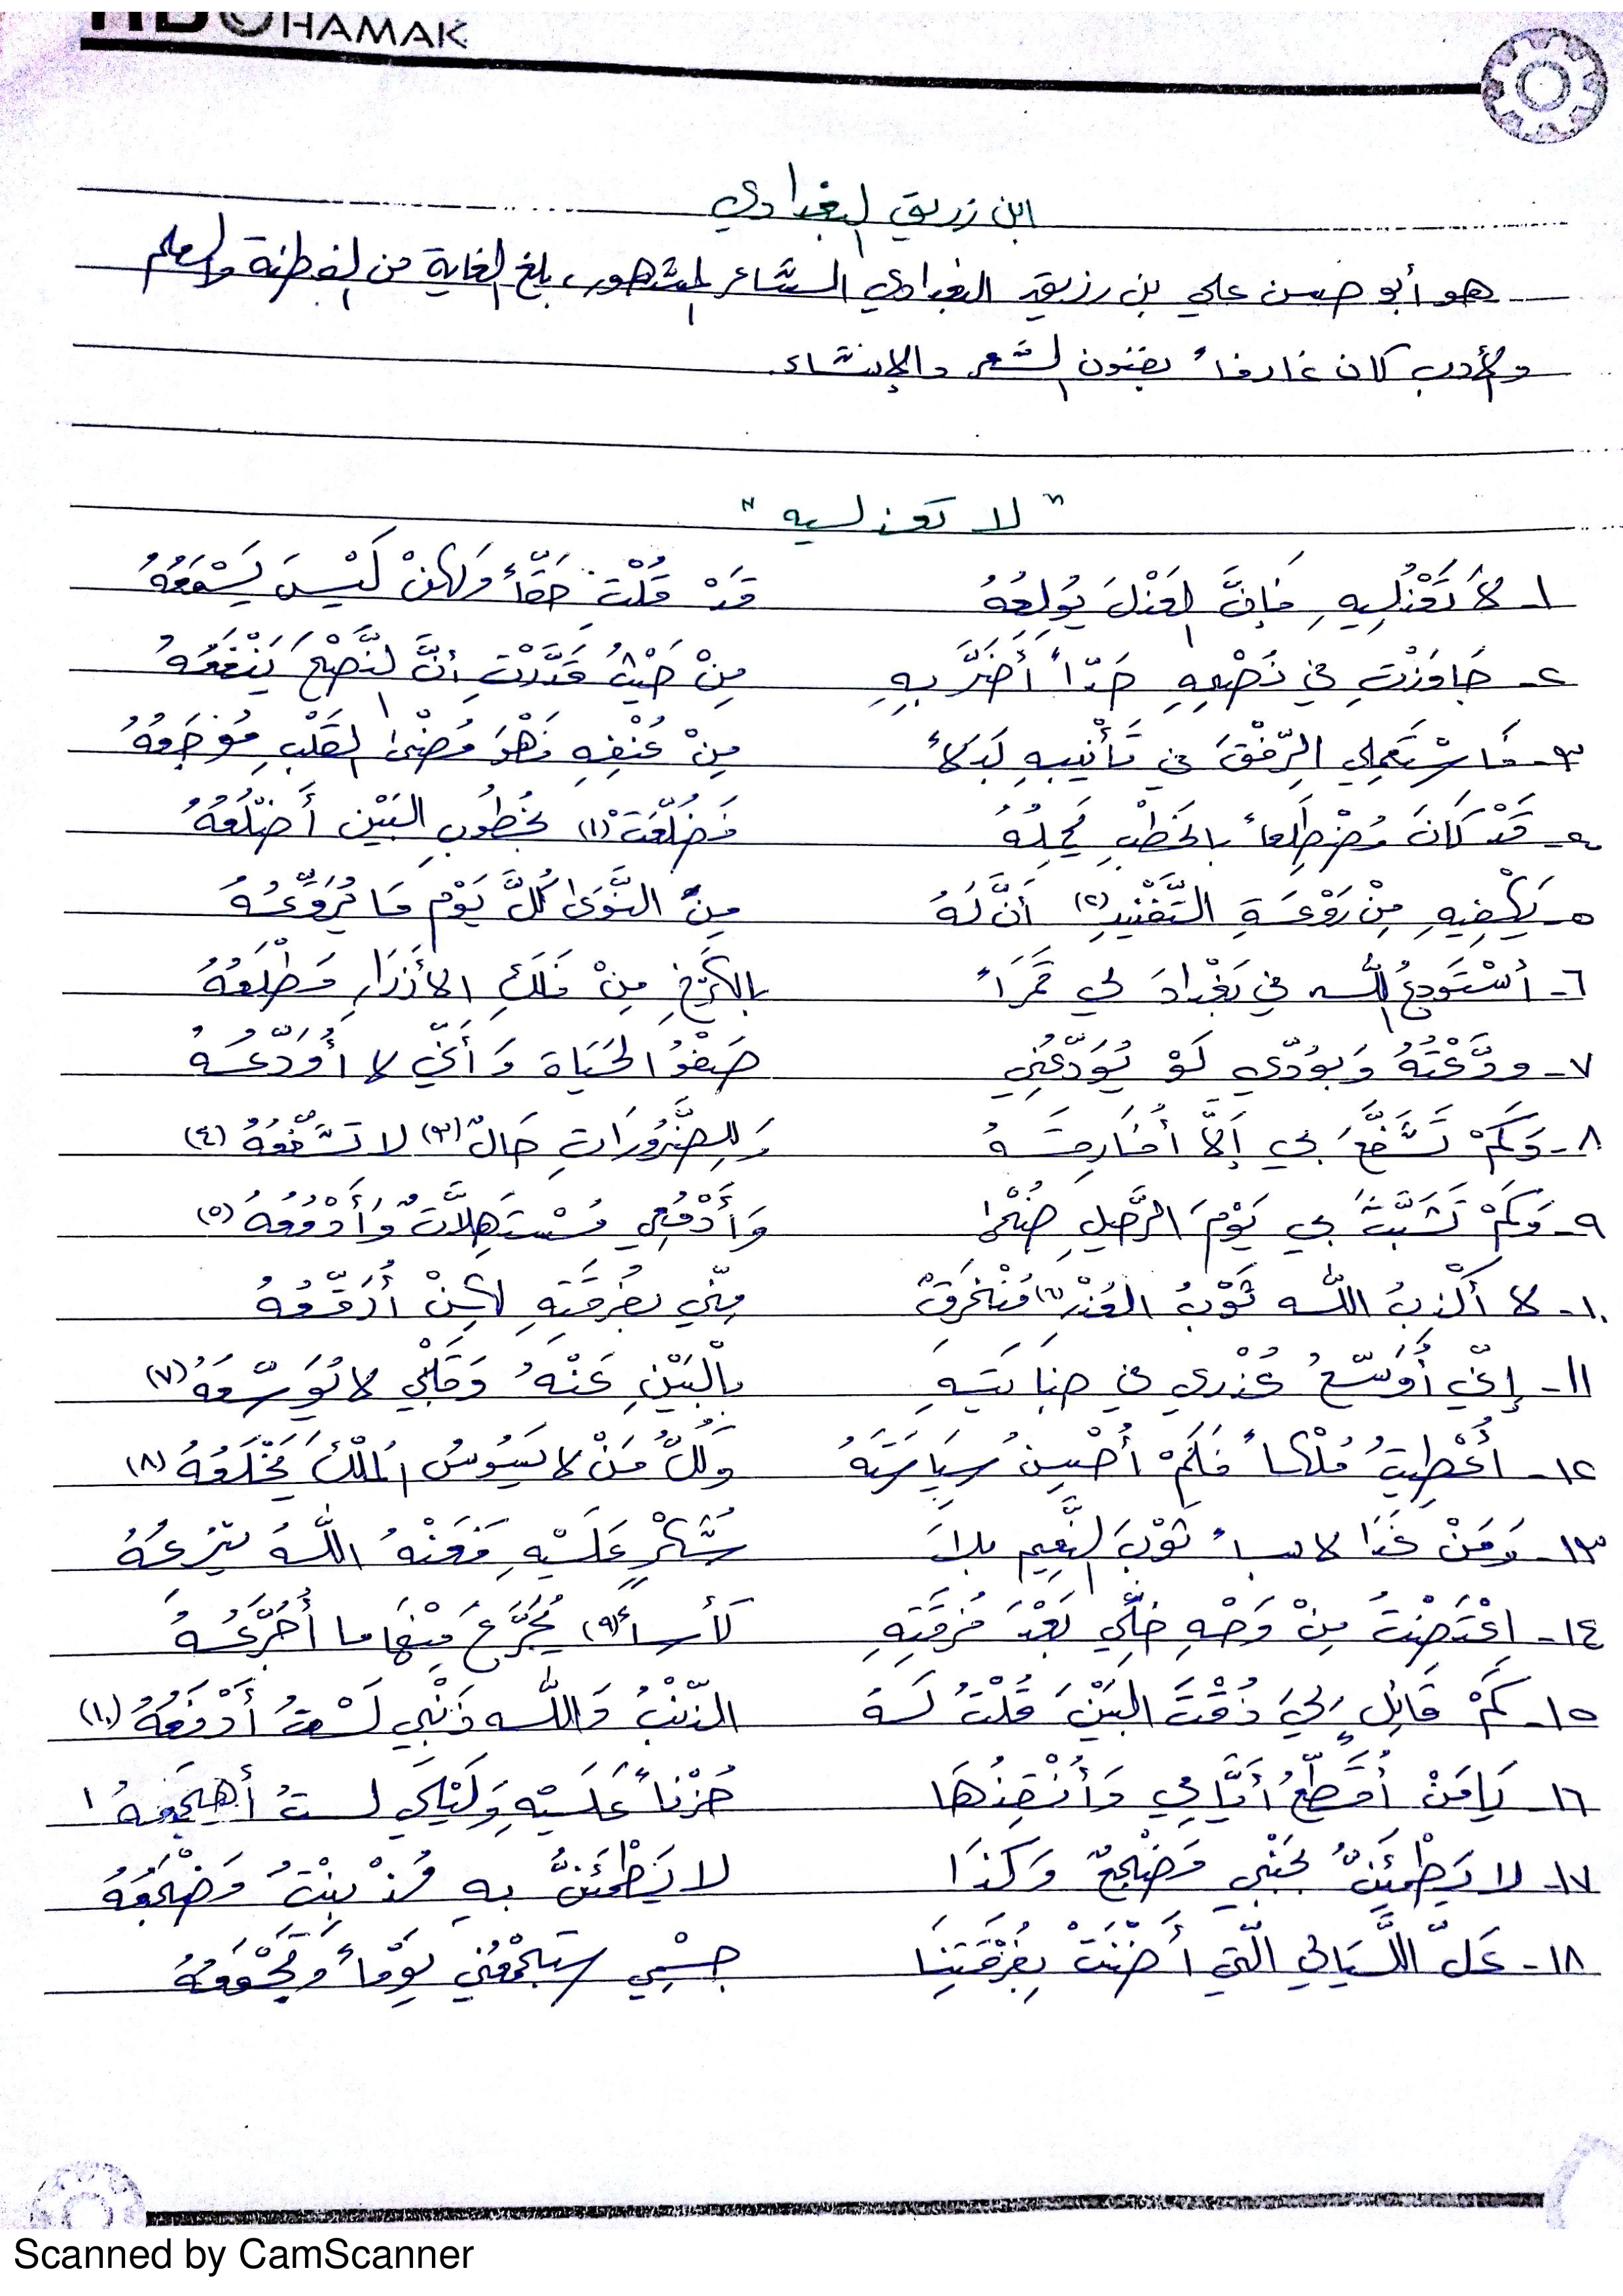 HAMAK
ابن زريق البغدادي
هو أبو حسن علي بن رزيق البغدادي الشاعر المشهور، بلغ الغاية من الفطنة والعلم
والأدب كان عارفاً بفنون الشعر والإنشاء.
"لا تعذليه"
١- لَا تَعْذُلِيهِ فَإِنَّ العَذْلَ يُولِعُهُ قَدْ قُلْتِ حَقّاً وَلَكِنْ لَيْسَ يَسْمَعُهُ
٢- جَاوَزْتِ في نُصْحِهِ حَدّاً أَضَرَّ بِهِ مِنْ حَيْثُ قَدَّرْتِ أنَّ النَّصْحَ يَنْفَعُهُ
٣- فَاسْتَعْمِلي الرِّفْقَ في تَأْنِيبِهِ بَدَلاً مِنْ عُنْفِهِ فَهْوَ مُضْنَى القَلْبِ مُوْجَعُهُ
٤- قَدْ كَانَ مُضْطَلِعاً بالخَطْبِ يَحْمِلُهُ فَضُلِّعَتْ (١) بِخُطُوبِ البَيْنِ أَضْلُعُهُ
٥- يَكْفِيهِ مِنْ رَوْعَةِ التَّفْنِيدِ (٢) أَنَّ لَهُ مِنَ النَّوَى كُلَّ يَوْمٍ مَا يُرَوِّعُهُ
٦- أَسْتَودِعُ اللّه في بَغْدادَ لي قَمَرَاً بالكَرْخِ مِنْ فَلَكِ الأَزْرَارِ مَطْلَعُهُ
٧- ودَّعْتُهُ وَبِوُدِّي لَوْ يُوَدِّعُنِي صَفْوُ الحَيَاة وَأَنِّي لا أُوَدِّعُهُ
٨- وَكَمْ تَشَفَّعَ بي أَلَّا أُفَارِقَهُ وَلِلضَّرُورَاتِ حَالٌ (٣) لا تُشَفِّعُهُ (٤)
٩- وَكَمْ تَشَبَّثَ بي يَوْمَ الرَّحِيلِ ضُحًى وَأَدْمُعِي مُسْتَهِلَّاتٌ وَأَدْمُعُهُ (٥)
١٠- لا أَكْذِبُ اللّه ثَوْبُ العُذْرِ (٦) مُنْخَرِقٌ مِنِّي بفُرقَتِهِ لَكِنْ أُرَقِّعُهُ
١١- إنّي أُوَسِّعُ عُذْرِي في جِنَايَتِهِ بِالْبَيْنِ عَنْهُ وَقَلْبِي لا يُوَسِّعُهُ (٧)
١٢- أُعْطِيتُ مُلْكاً فَلَمْ أُحْسِنْ سِيَاسَتَهُ وَكُلُّ مَنْ لا يَسُوسُ المُلْكَ يُخْلَعُهُ (٨)
١٣- وَمَنْ غَدَا لابساً ثَوْبَ النَّعِيمِ بلا شُكْرٍ عَلَيْهِ فَعَنْهُ اللّهُ يَنْزِعُهُ
١٤- اعْتَضْتُ مِنْ وَجْهِ خِلِّي بَعْدَ فُرقَتِهِ كَأْساً (٩) يُجَرَّعُ مِنْهَا ما أُجَرَّعُهُ
١٥- كَمْ قَائِلٍ لِيَ ذُقْتَ البَيْنَ قُلْتُ لَهُ الذَّنْبُ وَاللّه ذَنْبِي لَسْتُ أَدْفَعُهُ (١٠)
١٦- يَا مَنْ أُقَطِّعُ أَيَّامِي وَأُنْفِدُهَا حُزْناً عَلَيْهِ وَلَيْلِي لستُ أَهْجَعُهُ
١٧- لا يَطْمَئِنُّ بجَنْبِي مَضْجَعٌ وَكَذَا لا يَطْمَئِنُّ بِهِ مُذْ بِنْتُ مَضْجَعُهُ
١٨- عَلَّ اللَّيَالي الّتي أَضْنَتْ بِفُرْقَتِنَا جِسْمِي سَتَجْمَعُنِي يَوْماً وَتَجْمَعُهُ
Scanned by CamScanner